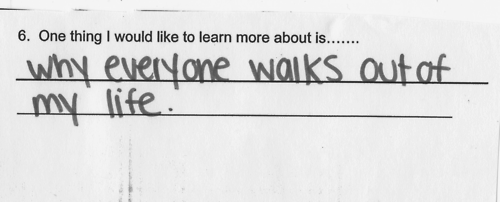 6. One thing I would like to learn more about is.......
why everyone walks out of
my life.